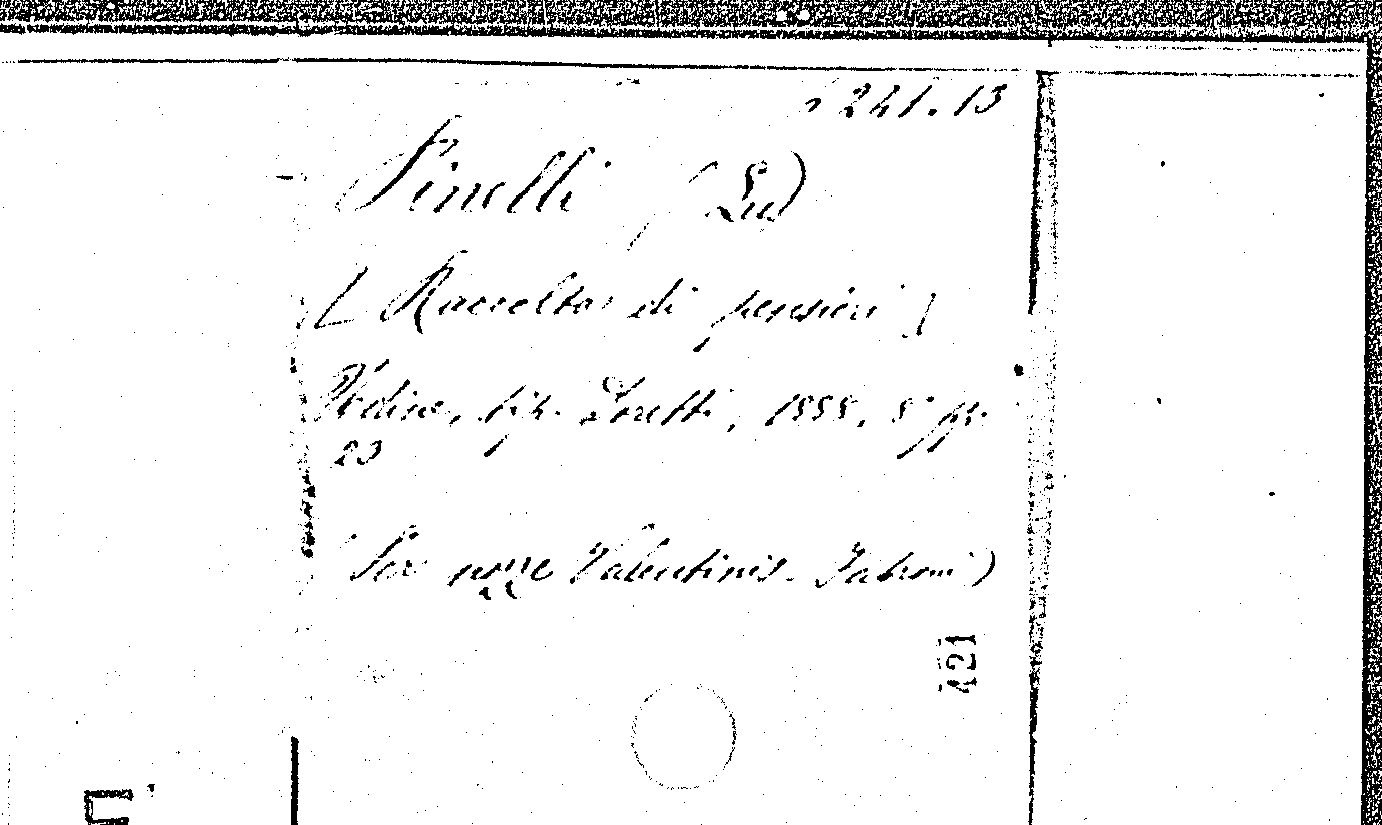 241.13
Pinelli (Lu)
[Raccolta di pensieri]
Udine, tip. Zoretti, 1888. 8° pp.
23
(Per nozze Valentinis-
421